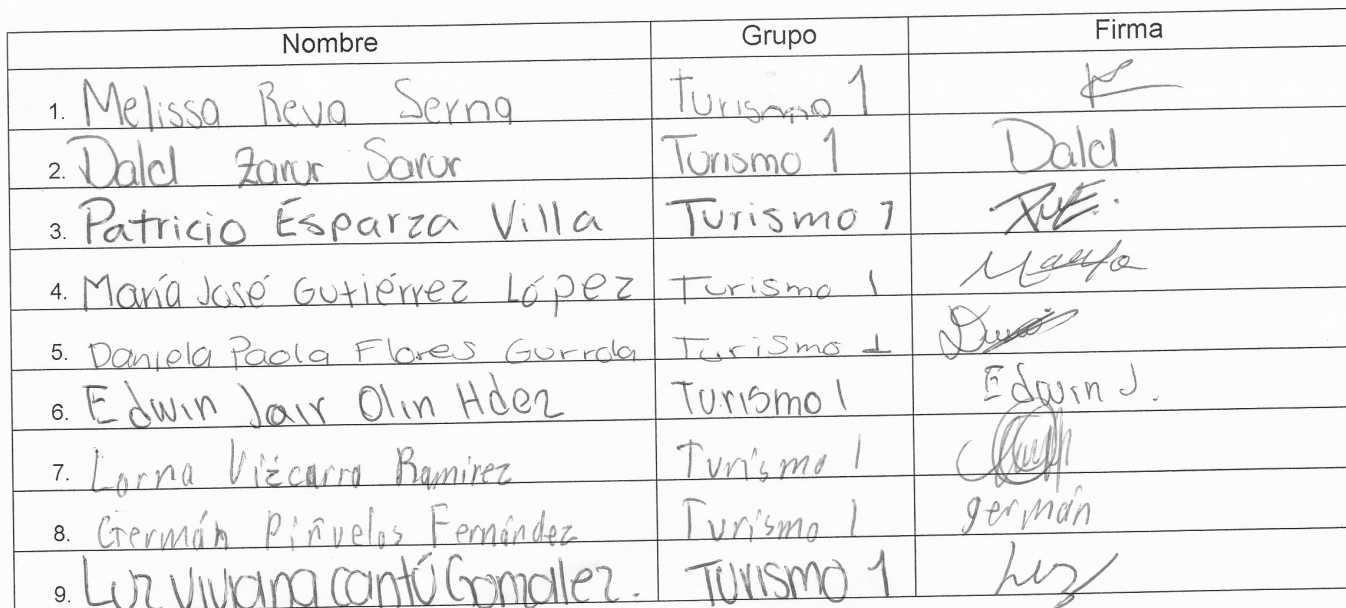 Nombre Grupo Firma
1. Melissa Reva Serna Turismo 1
2. Dald Zarur Sarur Turismo 1 Dald
3. Patricio Esparza Villa Turismo 1
4. María José Gutiérrez López Turismo 1
5. Daniela Paola Flores Gurrola Turismo 1
6. Edwin Jair Olin Hdez Turismo 1 Edwin J.
7. Lorna Vizcarra Ramirez Turismo 1
8. Germán Piñuelos Fernández Turismo 1 germán
9. Luz Viviana cantú Gomallez. Turismo 1 Luz